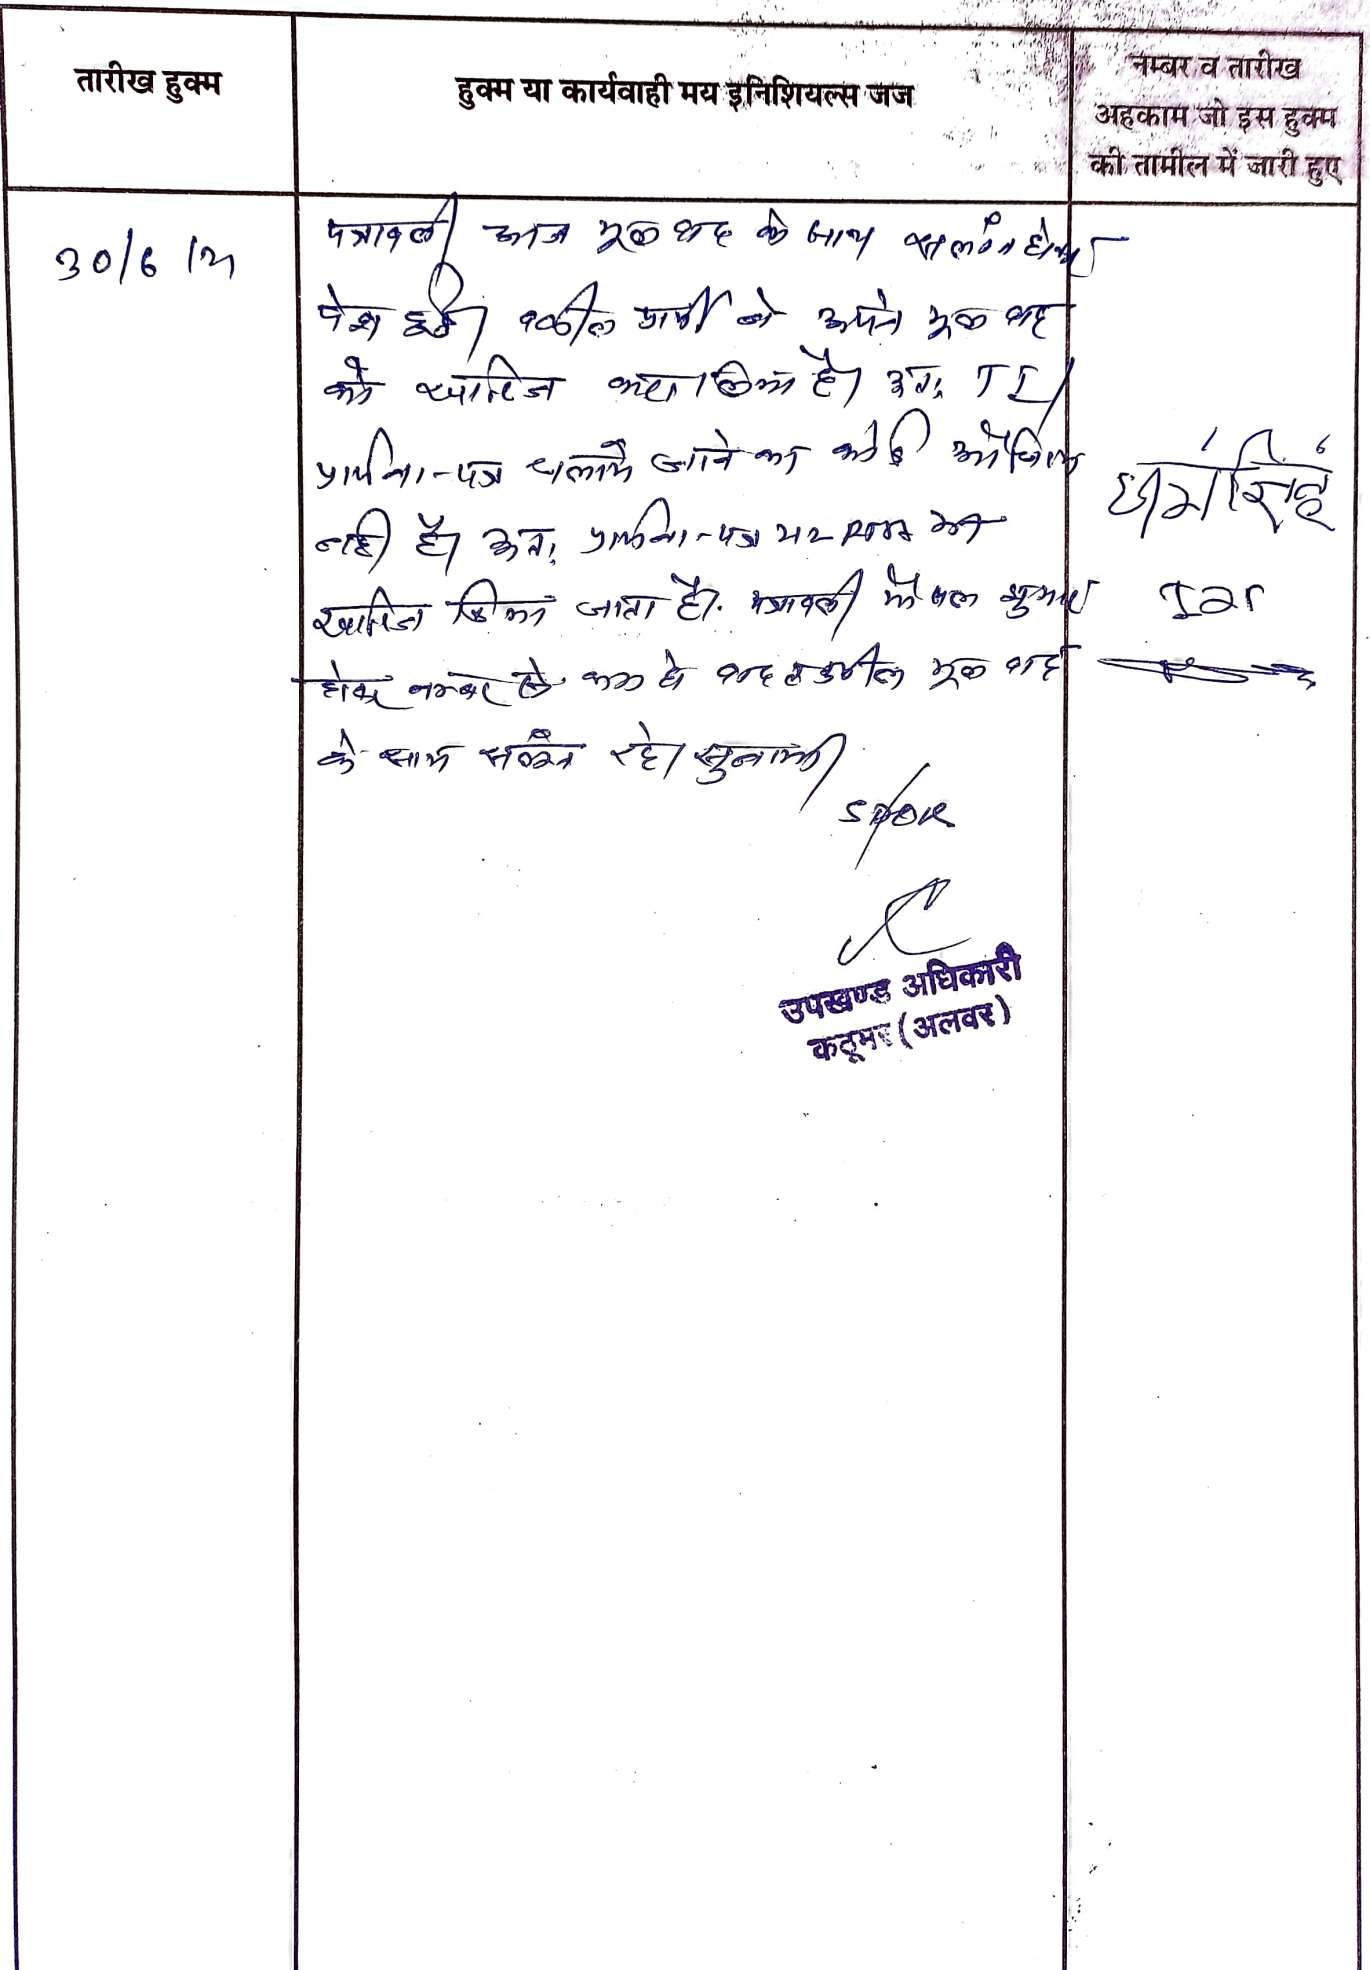 तारीख हुक्म
हुक्म या कार्यवाही मय इनिशियल्स जज
नम्बर व तारीख
अहकाम जो इस हुक्म
की तामील में जारी हुए
30/6/21
पत्रावली आज मूल वाद के साथ संलग्न होकर
पेश हुई। वकील प्रार्थी ने अपने मूल वाद
को खारिज करा लिया है। अतः TI
प्रार्थना-पत्र चलाये जाने का कोई औचित्य
नही है। अतः प्रार्थना-पत्र
खारिज किया जाता है। पत्रावली फैसल शुमार
होकर नम्बर से कम हो बाद तकमील मूल वाद
के साथ संलग्न रहे। सुनाया
धर्मसिंह
SDOK
उपखण्ड अधिकारी
कठूमर (अलवर)